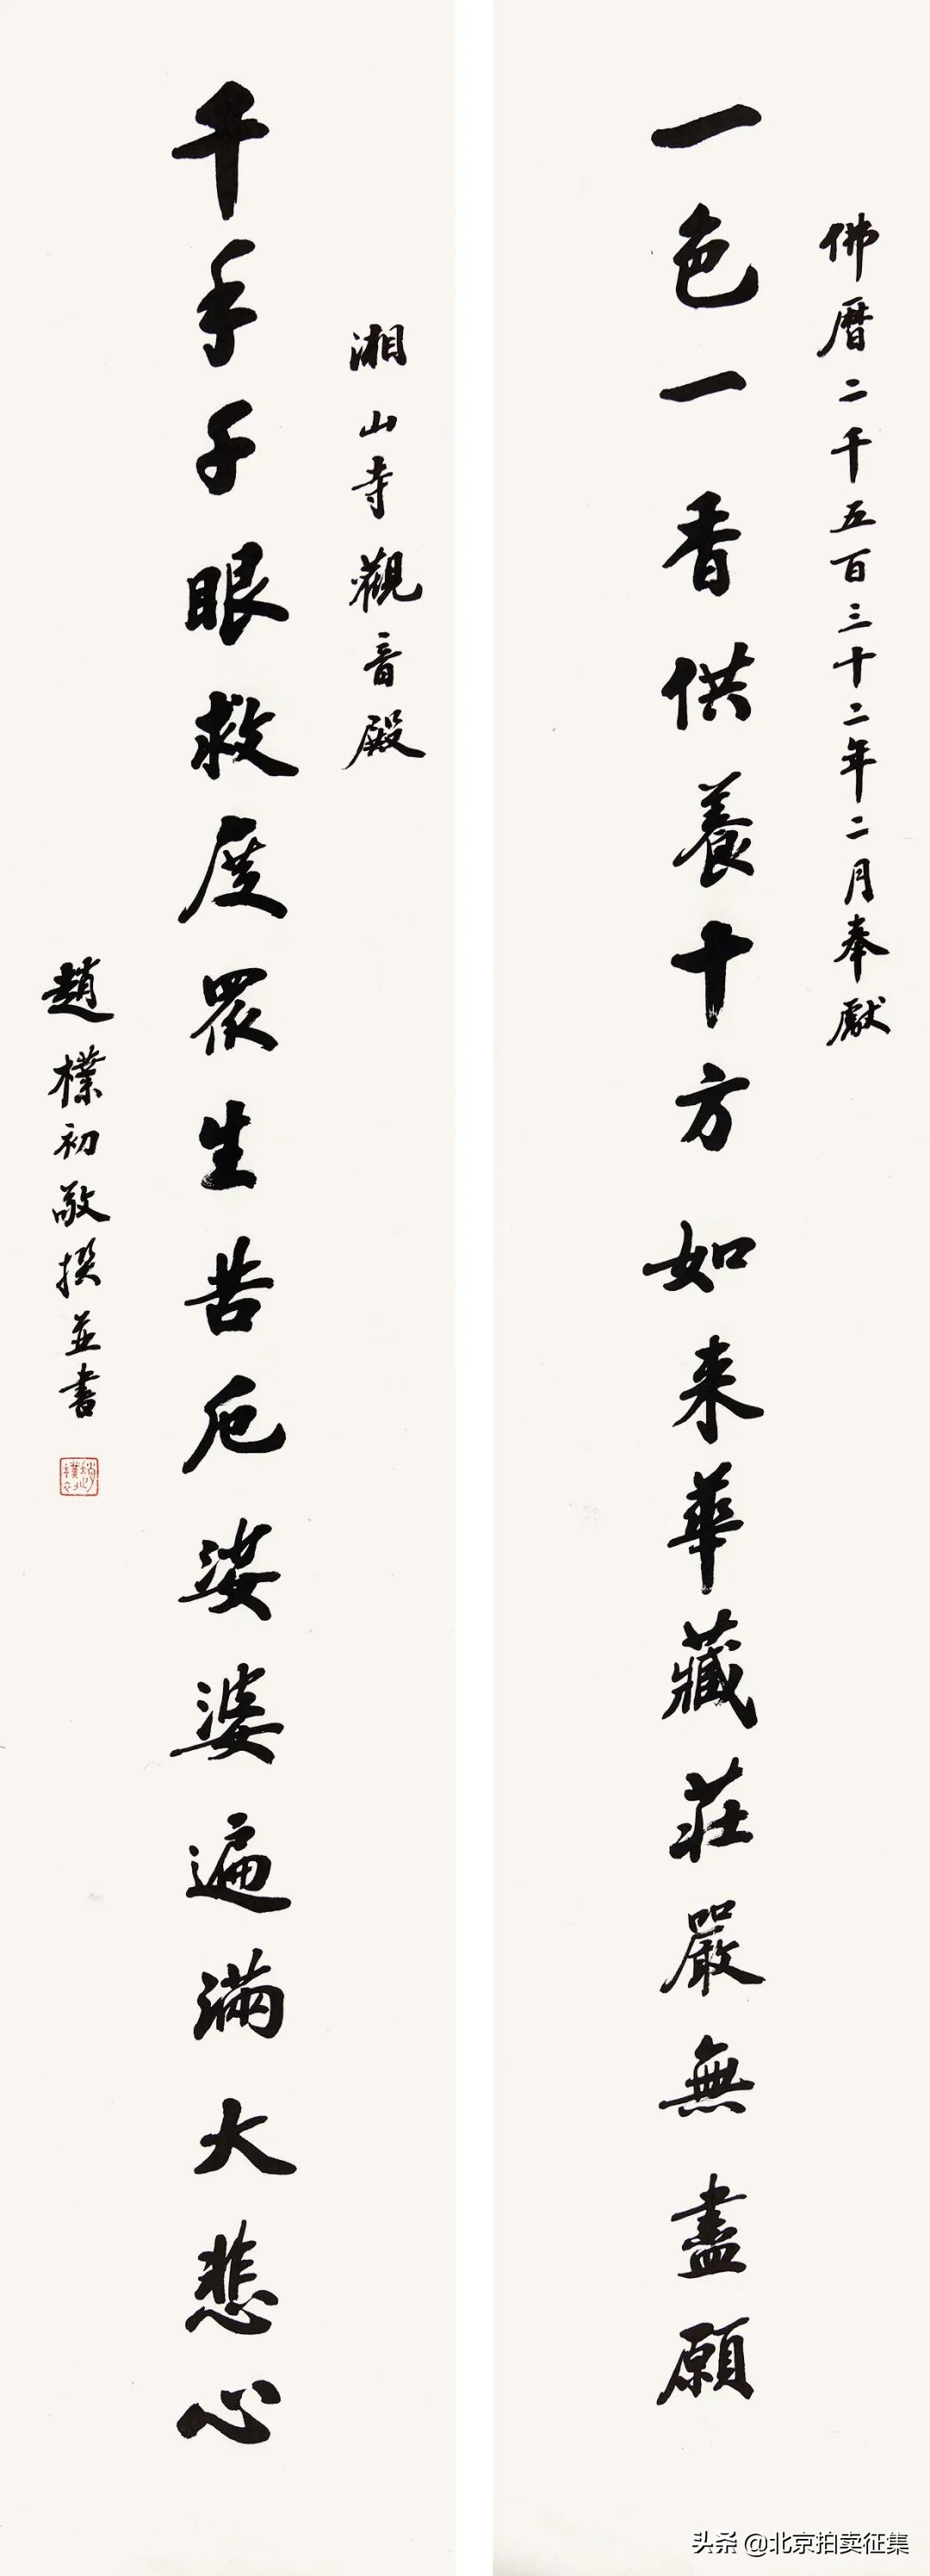 佛曆二千五百三十二年二月奉獻
一色一香供養十方如来華藏莊嚴無盡願
湘山寺觀音殿
千手千眼救度眾生苦厄娑婆遍滿大悲心
趙樸初敬撰並書
趙樸初
头条 @北京拍卖征集